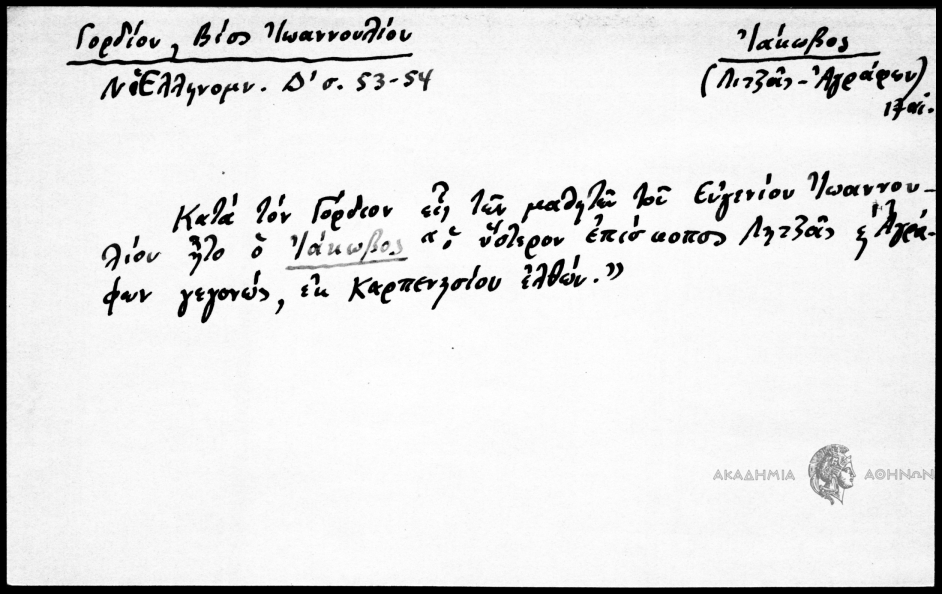 Γορδίου, Βίος Ἰωαννουλίου
Ν. Ἑλληνομν. Δ' σ. 53-54
Ἰάκωβος
(Λιτζᾶς-Ἀγράφων)
17 αἰ.
Κατά τόν Γόρδιον εἷς τῶν μαθητῶν τοῦ Εὐγενίου Ἰωαννου-
λίου ἦτο ὁ Ἰάκωβος "ὁ ὕστερον ἐπίσκοπος Λητζᾶς ἐ Ἀγρά-
φων γεγονώς, ἐκ Καρπενησίου ἐλθών."
ΑΚΑΔΗΜΙΑ ΑΘΗΝΩΝ